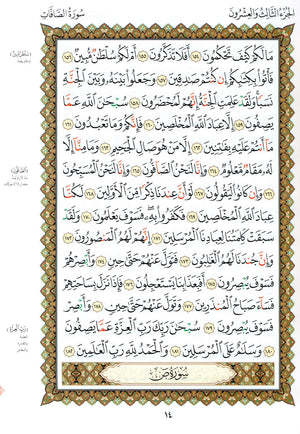 الجزء الثالث والعشرون
سورة الصافات
مَا لَكُمْ كَيْفَ تَحْكُمُونَ ١٥٤ أَفَلَا تَذَكَّرُونَ ١٥٥ أَمْ لَكُمْ سُلْطَٰنٌ مُّبِينٌ ١٥٦
فَأْتُوا۟ بِكِتَٰبِكُمْ إِن كُنتُمْ صَٰدِقِينَ ١٥٧ وَجَعَلُوا۟ بَيْنَهُۥ وَبَيْنَ ٱلْجِنَّةِ
نَسَبًا ۚ وَلَقَدْ عَلِمَتِ ٱلْجِنَّةُ إِنَّهُمْ لَمُحْضَرُونَ ١٥٨ سُبْحَٰنَ ٱللَّهِ عَمَّا
يَصِفُونَ ١٥٩ إِلَّا عِبَادَ ٱللَّهِ ٱلْمُخْلَصِينَ ١٦٠ فَإِنَّكُمْ وَمَا تَعْبُدُونَ ١٦١
مَآ أَنتُمْ عَلَيْهِ بِفَٰتِنِينَ ١٦٢ إِلَّا مَنْ هُوَ صَالِ ٱلْجَحِيمِ ١٦٣ وَمَا مِنَّآ إِلَّا
لَهُۥ مَقَامٌ مَّعْلُومٌ ١٦٤ وَإِنَّا لَنَحْنُ ٱلصَّآفُّونَ ١٦٥ وَإِنَّا لَنَحْنُ ٱلْمُسَبِّحُونَ
١٦٦ وَإِن كَانُوا۟ لَيَقُولُونَ ١٦٧ لَوْ أَنَّ عِندَنَا ذِكْرًا مِّنَ ٱلْأَوَّلِينَ ١٦٨ لَكُنَّا
عِبَادَ ٱللَّهِ ٱلْمُخْلَصِينَ ١٦٩ فَكَفَرُوا۟ بِهِۦ ۖ فَسَوْفَ يَعْلَمُونَ ١٧٠ وَلَقَدْ
سَبَقَتْ كَلِمَتُنَا لِعِبَادِنَا ٱلْمُرْسَلِينَ ١٧١ إِنَّهُمْ لَهُمُ ٱلْمَنصُورُونَ ١٧٢
وَإِنَّ جُندَنَا لَهُمُ ٱلْغَٰلِبُونَ ١٧٣ فَتَوَلَّ عَنْهُمْ حَتَّىٰ حِينٍ ١٧٤ وَأَبْصِرْهُمْ
فَسَوْفَ يُبْصِرُونَ ١٧٥ أَفَبِعَذَابِنَا يَسْتَعْجِلُونَ ١٧٦ فَإِذَا نَزَلَ بِسَاحَتِهِمْ
فَسَآءَ صَبَاحُ ٱلْمُنذَرِينَ ١٧٧ وَتَوَلَّ عَنْهُمْ حَتَّىٰ حِينٍ ١٧٨ وَأَبْصِرْ
فَسَوْفَ يُبْصِرُونَ ١٧٩ سُبْحَٰنَ رَبِّكَ رَبِّ ٱلْعِزَّةِ عَمَّا يَصِفُونَ
١٨٠ وَسَلَٰمٌ عَلَى ٱلْمُرْسَلِينَ ١٨١ وَٱلْحَمْدُ لِلَّهِ رَبِّ ٱلْعَٰلَمِينَ ١٨٢
سورة ص
١٤